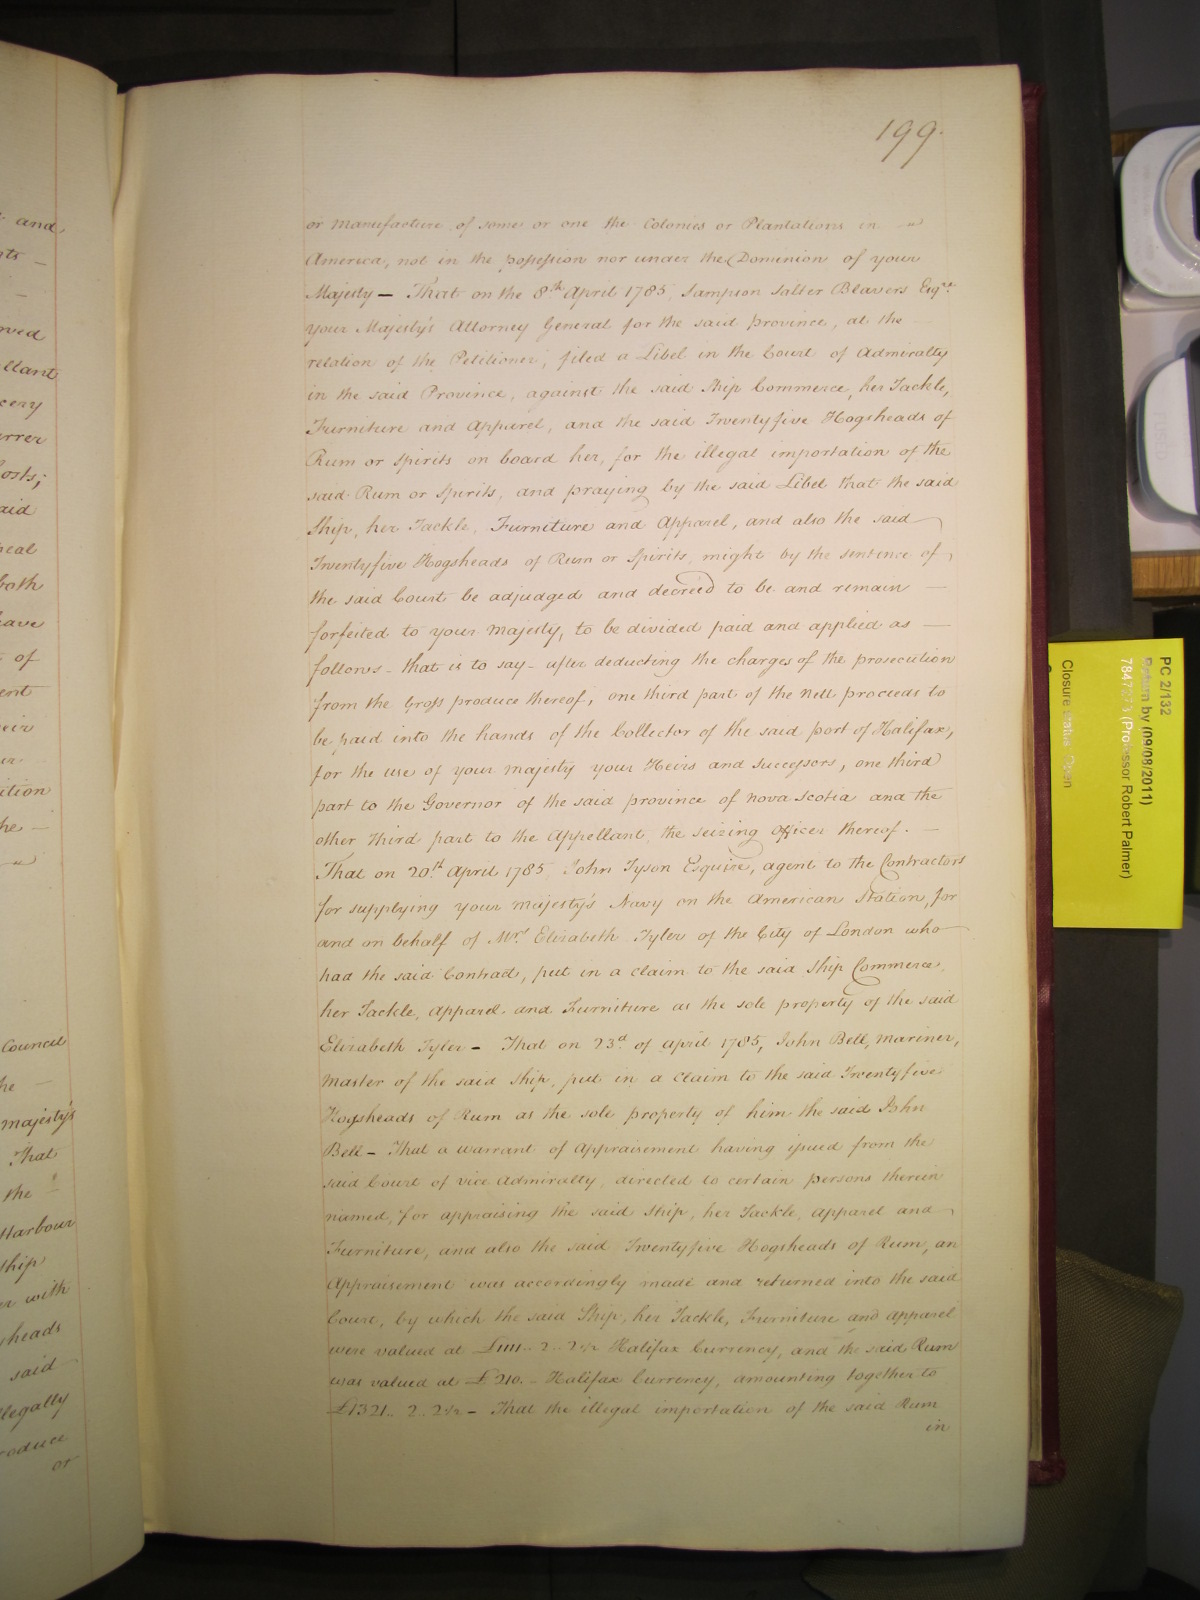 199.
or Manufacture of some or one the Colonies or Plantations in
America, not in the possession nor under the Dominion of your
Majesty — That on the 8th April 1785, Sampson Salter Blowers Esqre
your Majesty's Attorney General for the said province, at the
relation of the Petitioner, filed a Libel in the Court of Admiralty
in the said Province, against the said Ship Commerce, her Tackle,
Furniture and Apparel, and the said Twentyfive Hogsheads of
Rum or Spirits on board her, for the illegal importation of the
said Rum or Spirits, and praying by the said Libel that the said
Ship, her Tackle, Furniture and Apparel, and also the said
Twentyfive Hogsheads of Rum or Spirits, might by the sentence of
the said Court be adjudged and decreed to be and remain —
forfeited to your Majesty, to be divided paid and applied as —
follows - that is to say - after deducting the charges of the prosecution
from the Gross produce thereof, one third part of the Nett proceeds to
be paid into the hands of the Collector of the said port of Halifax,
for the use of your Majesty your Heirs and Successors, one third
part to the Governor of the said province of Nova Scotia and the
other third part to the Appellant, the seizing Officer thereof. —
That on 20th April 1785, John Tyson Esquire, agent to the Contractors
for supplying your Majesty's Navy on the American Station, for
and on behalf of Mrs Elizabeth Tyler of the City of London who
had the said Contract, put in a claim to the said Ship Commerce
her Tackle, Apparel and Furniture as the sole property of the said
Elizabeth Tyler - That on 23d of April 1785, John Bell, Mariner,
Master of the said Ship, put in a Claim to the said Twentyfive
Hogsheads of Rum as the sole property of him the said John
Bell - That a Warrant of Appraisement having issued from the
said Court of vice Admiralty, directed to certain persons therein
named, for appraising the said Ship, her Tackle, Apparel and
Furniture, and also the said Twentyfive Hogsheads of Rum, an
Appraisement was accordingly made and returned into the said
Court, by which the said Ship, her Tackle, Furniture and Apparel
were valued at £1111.. 2.. 2½ Halifax Currency, and the said Rum
was valued at £210. - Halifax Currency, amounting together to
£1321.. 2.. 2½ - That the illegal importation of the said Rum
in
and
nts —
ved
llant
cery
urrer
osts;
aid
peal
both
have
of
ent
eir
ition
he —
Council
he —
Majesty's
That
the
Harbour
Ship
er with
sheads
said
llegally
roduce
or
PC 2/132
Return by (09/08/2011)
(Professor Robert Palmer)
Closure status: Open